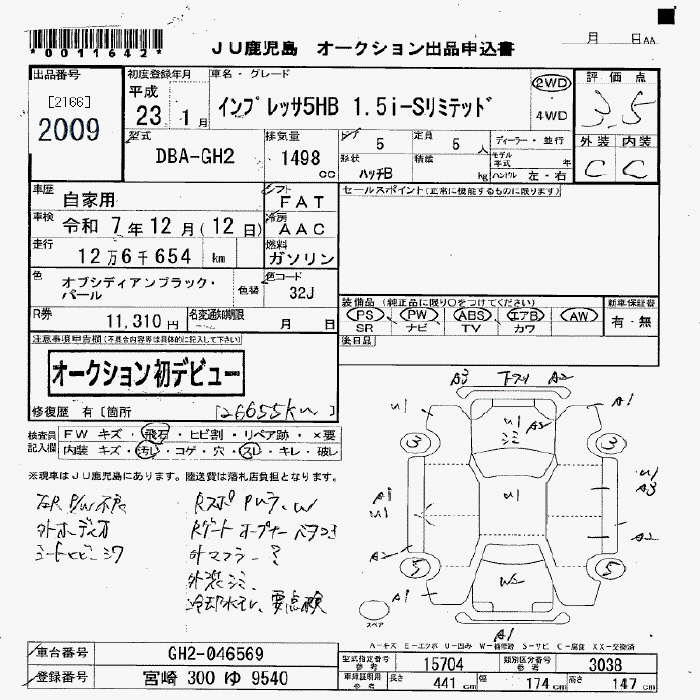 *0011642*
JU鹿児島 オークション出品申込書
月 日AA
出品番号
[2166]
2009
初度登録年月
平成
23年 1月
車名・グレード
インプレッサ5HB 1.5i-Sリミテッド
2WD
4WD
評価点
3.5
外装 内装
C C
型式
DBA-GH2
排気量
1498
cc
ドア
5
形状
ハッチB
定員
5 人
積載
kg
ディーラー・並行
モデル年式 年
ハンドル 左・右
車歴
自家用
シフト
FAT
セールスポイント(正常に機能するものに限ります)
車検
令和 7年12月(12日)
冷房
AAC
走行
12万6千654 km
燃料
ガソリン
色
オブシディアンブラック・パール
色替
色コード
32J
装備品(純正品に限り○をつけてください)
PS PW ABS エアB AW
SR ナビ TV カワ
新車保証書
有・無
R券
11,310円
名変通知期限
月 日
後日品
注意事項申告欄(不具合内容等は具体的に記入して下さい)
オークション初デビュー
修復歴 有[箇所
[26655km]
検査員記入欄
FW キズ・飛石・ヒビ割・リペア跡・×要
内装 キズ・汚レ・コゲ・穴・スレ・キレ・破レ
※現車はJU鹿児島にあります。陸送費は落札店負担となります。
左R P/W不良
外オーディオ
シートヒビ・シワ
Rスポ
Rゲートオープナー
外マフラー?
外装シミ
冷却水モレ、要点検
A3 A2
U1 A1
3 3
U1 シミ A2
U1
A1 U1
U1 A3
A2 A2
5 5
W2
A1 A1
スペア
A-キズ E-エクボ U-凹み W-補修跡 S-サビ C-腐蝕 XX-交換済
車台番号
GH2-046569
登録番号
宮崎 300 ゆ 9540
型式指定番号参考
15704
類別区分番号参考
3038
車検証明用参考
長さ 441 cm
幅 174 cm
高さ 147 cm